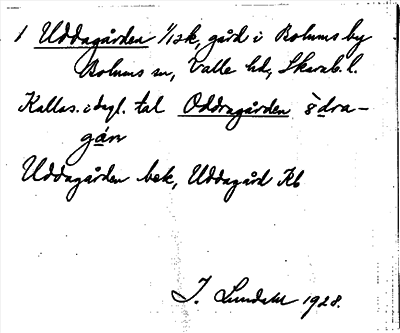 1 Uddagården 1/1 sk, gård i Bolums by
Bolums sn, Valle hd, Skarab. l.
Kallas. i dagl. tal Oddragården ŏdra-
gån
Uddagården bek, Uddagård Kb
I. Lundahl 1928.